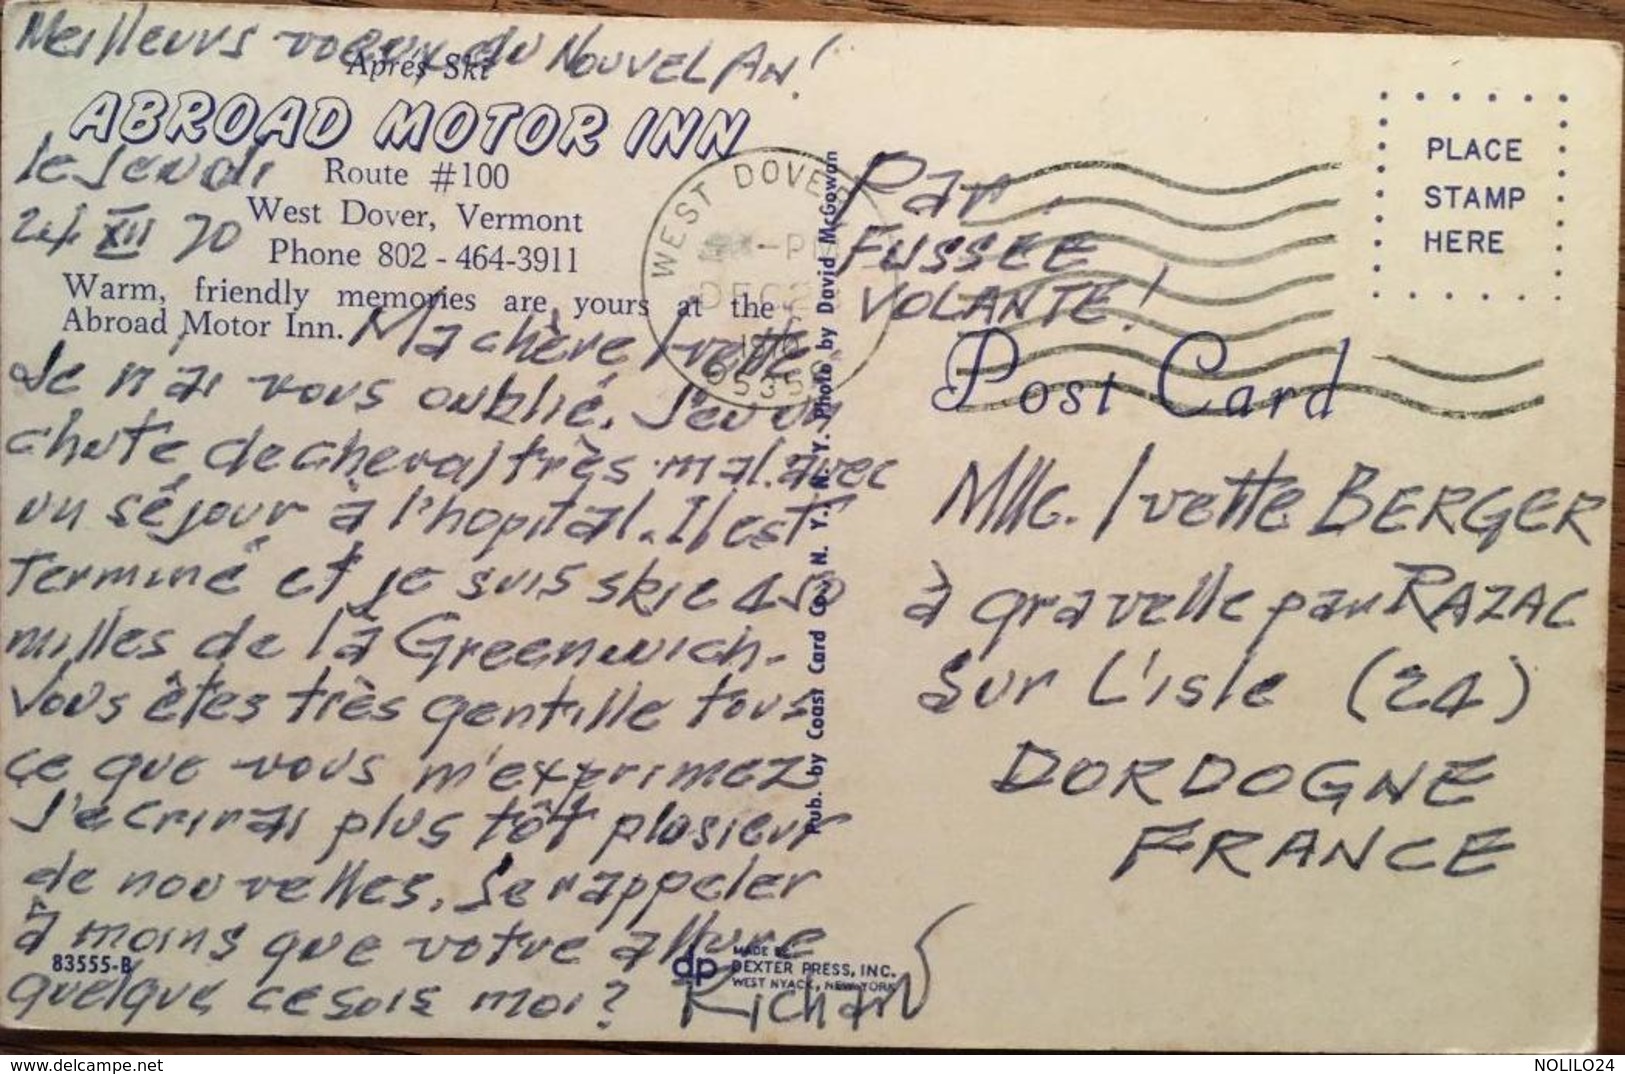 Meilleurs voeux du NOUVEL AN!
Après Ski
ABROAD MOTOR INN
le Jeudi
Route #100
24 XII 70
West Dover, Vermont
Phone 802 - 464-3911
Warm, friendly memories are yours at the
Abroad Motor Inn.
Ma chère Ivette
Je n'ai vous oublié. J'eu un
chute de cheval très mal. avec
un séjour à l'hopital. Il est
terminé et je suis skie a 50
milles de là Greenwich.
Vous êtes très gentille tous
ce que vous m'exprimez
J'ecrirai plus tôt plusieur
de nouvelles. Se rappeler
à moins que votre allure
quelque ce sois moi? Richard
83555-B
dp
MADE BY
DEXTER PRESS, INC.
WEST NYACK, NEW YORK
Pub. by Coast Card Co., N. Y., N. Y. Photo by David McGowan
WEST DOVER
PM
DEC
1970
05356
Par
FUSSEE
VOLANTE!
PLACE
STAMP
HERE
Post Card
Mlle. Ivette BERGER
à gravelle par RAZAC
Sur L'isle (24)
DORDOGNE
FRANCE
NOLILO24